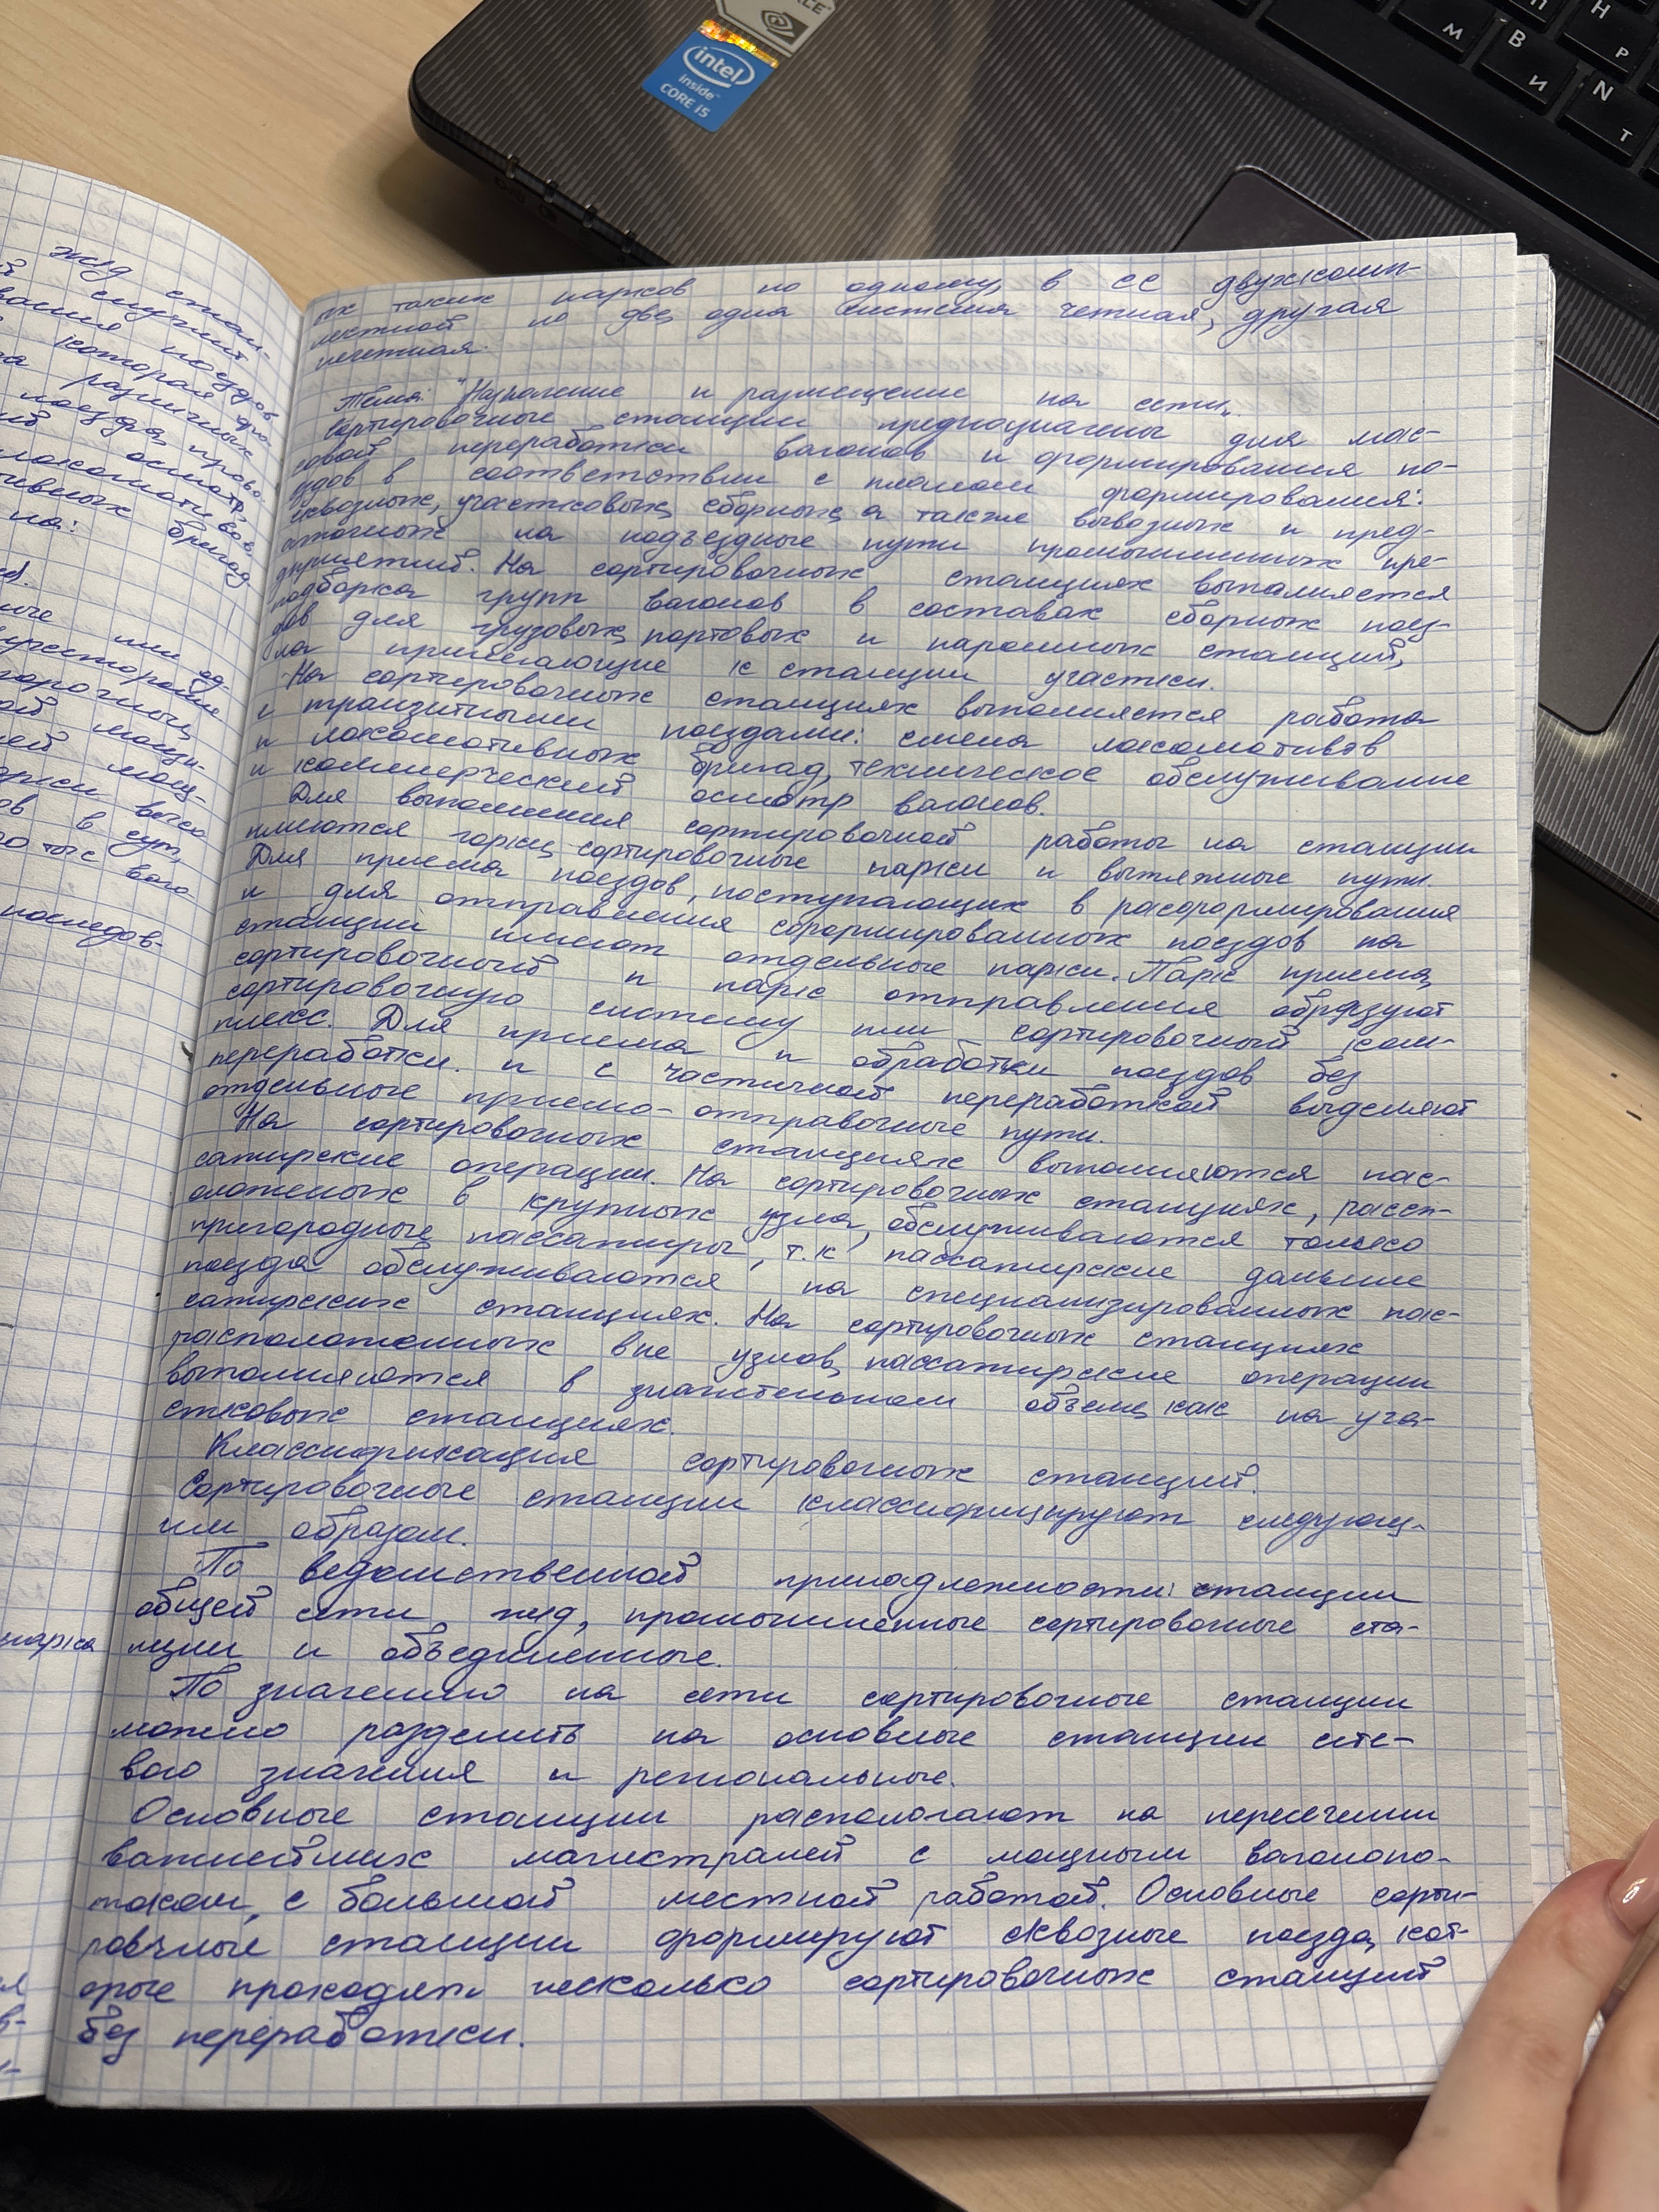 intel
inside™
CORE i5
М
В
И
Н
Р
N
Т
жд стан-
случит
поездов
которая
различных
поезда, прово-
осмотр,
локомотивов
бригад
на:
или од-
двухсторонние
горочный
вагo
в сут,
тыс ваго
последов-
парка
их таких парков по одному, в её двухкомп-
лектной по две, одна система четная, другая
нечетная.
Тема: "Назначение и размещение на сети"
Сортировочные станции предназначены для мас-
совой переработки вагонов и формирования по-
ездов в соответствии с планом формирования:
сквозных, участковых, сборных, а также вывозных и перед-
аточных на подъездные пути промышленных пре-
дприятий. На сортировочных станциях выполняется
подборка групп вагонов в составах сборных поез-
дов для грузовых, портовых и паромных станций,
на прилегающие к станции участки.
На сортировочных станциях выполняется работа
с транзитными поездами: смена локомотивов
и локомотивных бригад, техническое обслуживание
и коммерческий осмотр вагонов.
Для выполнения сортировочной работы на станции
имеются горки, сортировочные парки и вытяжные пути.
Для приема поездов, поступающих в расформирования
и для отправления сформированных поездов на
станции имеют отдельные парки. Парк приема,
сортировочный и парк отправления образуют
сортировочную систему или сортировочный ком-
плекс. Для приема и обработки поездов без
переработки. и с частичной переработкой выделяют
отдельные приемо-отправочные пути.
На сортировочных станциях выполняются пас-
сажирские операции. На сортировочных станциях, расп-
оложеных в крупных узла, обслуживаются только
пригородные пассажиры, т.к пассажирские дальние
поезда обслуживаются на специализированных пас-
сажирских станциях. На сортировочных станциях
расположенных вне узлов, пассажирские операции
выполняются в значительном объеме, как на уча-
стковых станциях.
Классификация сортировочных станций.
Сортировочные станции классифицируют следующ-
им образом.
По ведомственной принадлежности: станции
общей сети, жд, промышленные сортировочные ста-
нции и объединенные.
По значению на сети сортировочные станции
можно разделить на основные станции сете-
вого значения и региональные.
Основные станции располагают на пересечении
важнейших магистралей с мощным вагонопо-
током, с большой местной работой. Основные сорти-
ровчные станции формируют сквозные поезда, кот-
орые проходят несколько сортировочных станций
без переработки.